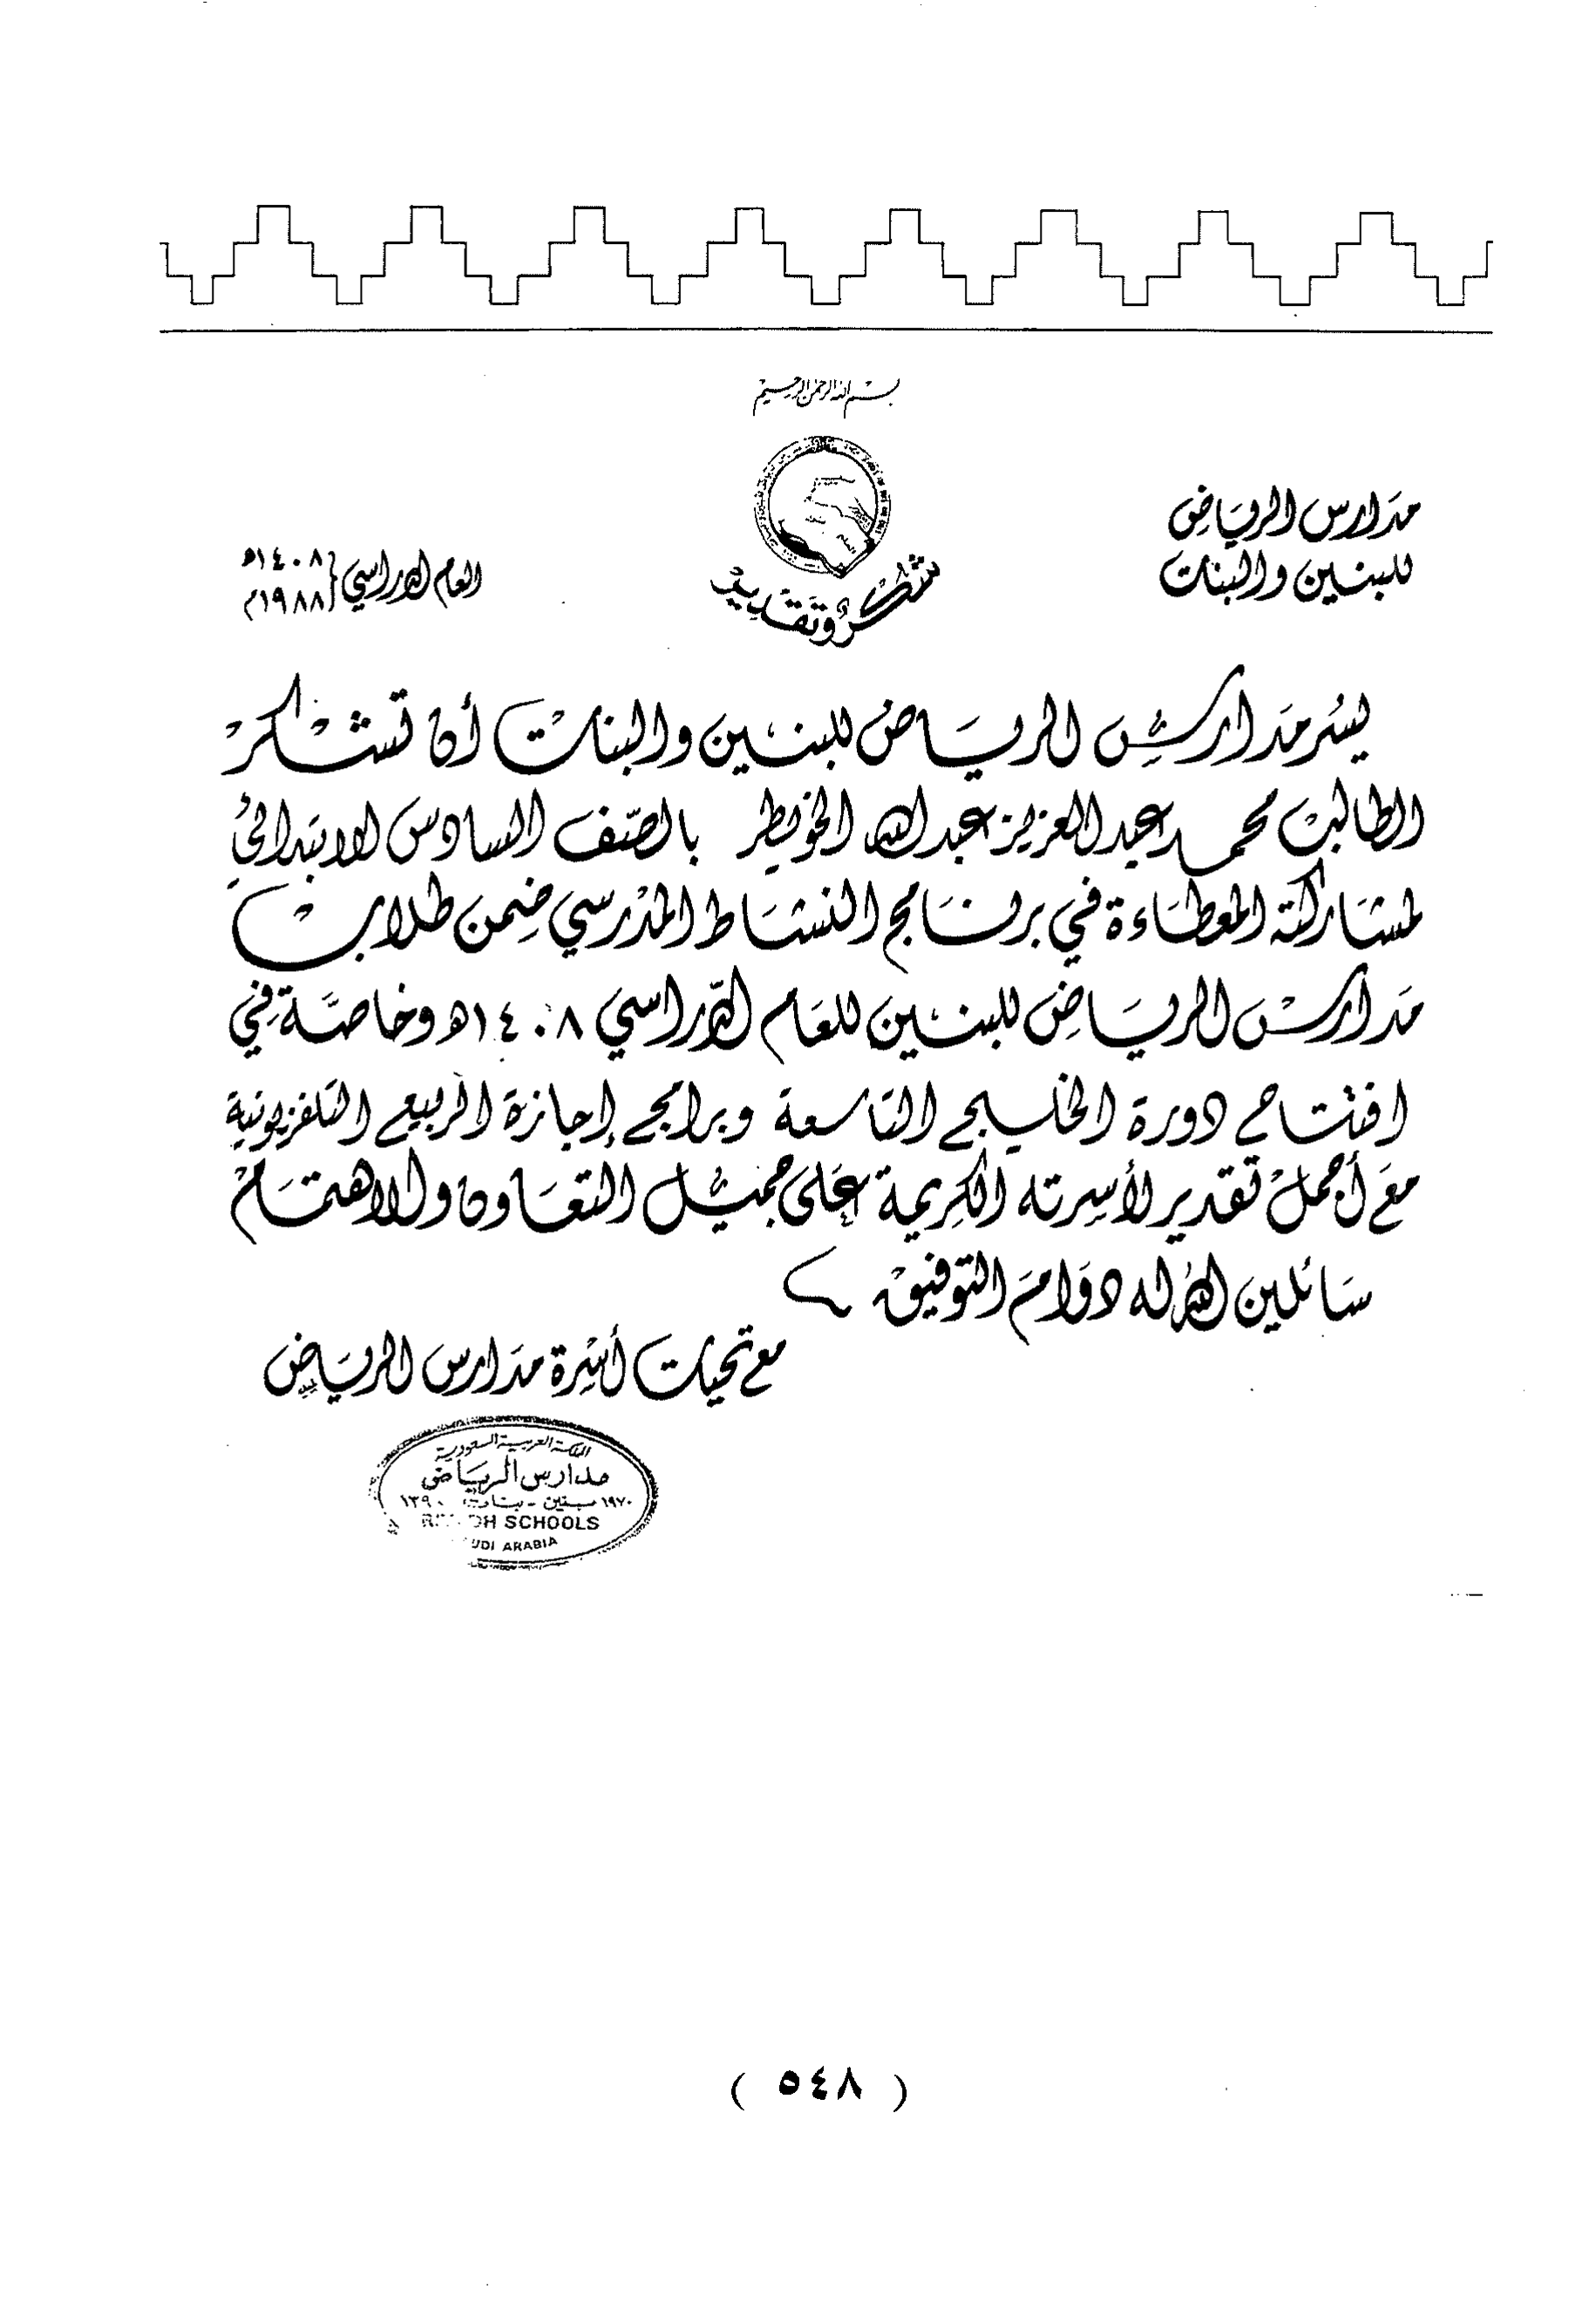 بسم الله الرحمن الرحيم
مدارس الرياض
للبنين والبنات
العام الدراسي
١٤٠٨هـ
١٩٨٨م
شكر وتقدير
يسر مدارس الرياض للبنين والبنات أن تشكر
الطالب محمد عبد العزيز عبد الله الخويطر بالصف السادس الابتدائي
لمشاركته المعطاءة في برنامج النشاط المدرسي ضمن طلاب
مدارس الرياض للبنين للعام الدراسي ١٤٠٨هـ وخاصة في
افتتاح دورة الخليج التاسعة وبرامج إجازة الربيع التلفزيونية
مع أجمل تقدير لأسرته الكريمة على جميل التعاون والاهتمام
سائلين الله له دوام التوفيق
مع تحيات أسرة مدارس الرياض
المملكة العربية السعودية
مدارس الرياض
١٩٧٠ بنين - بنات ١٣٩٠
RIYADH SCHOOLS
SAUDI ARABIA
( ٥٤٨ )